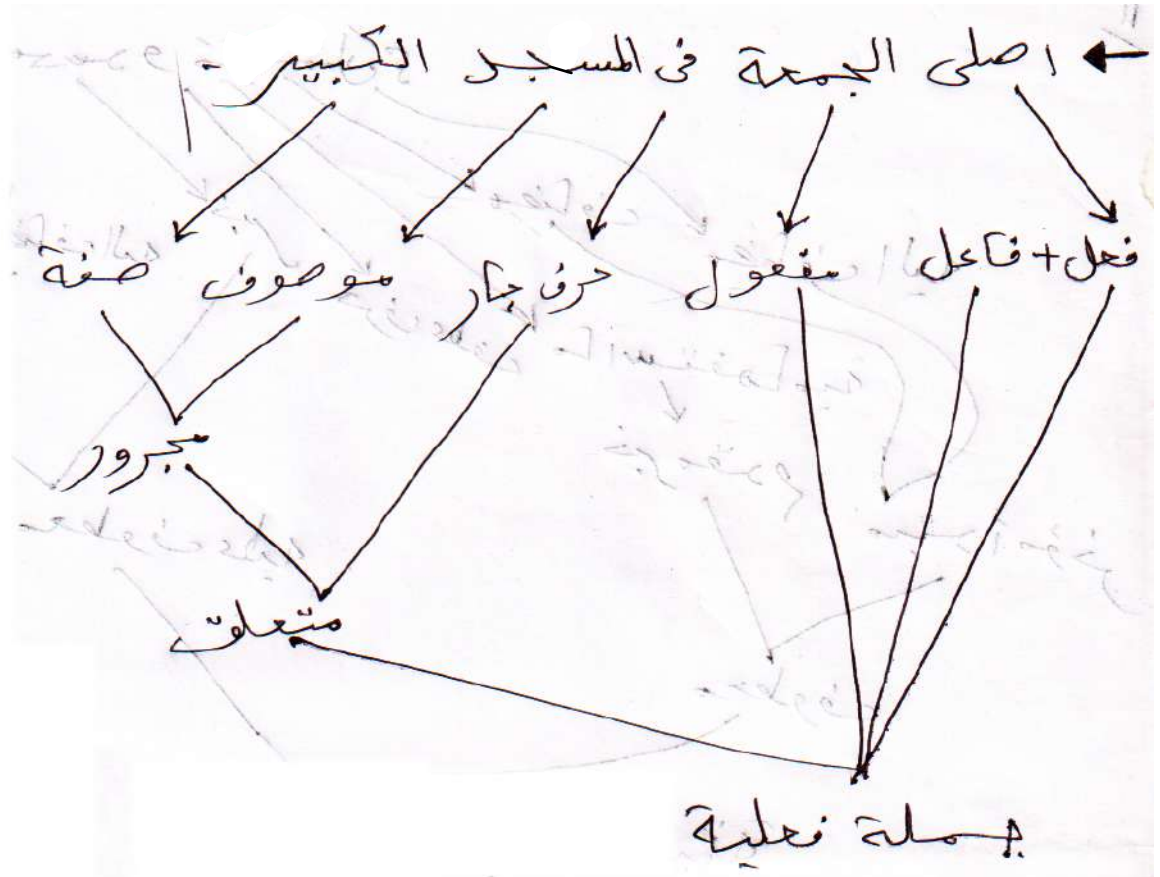 ← اصلى الجمعة فى المسجد الكبير .
فعل + فاعل مفعول حرف جار موصوف صفة
مجرور
متعلق
جملة فعلية